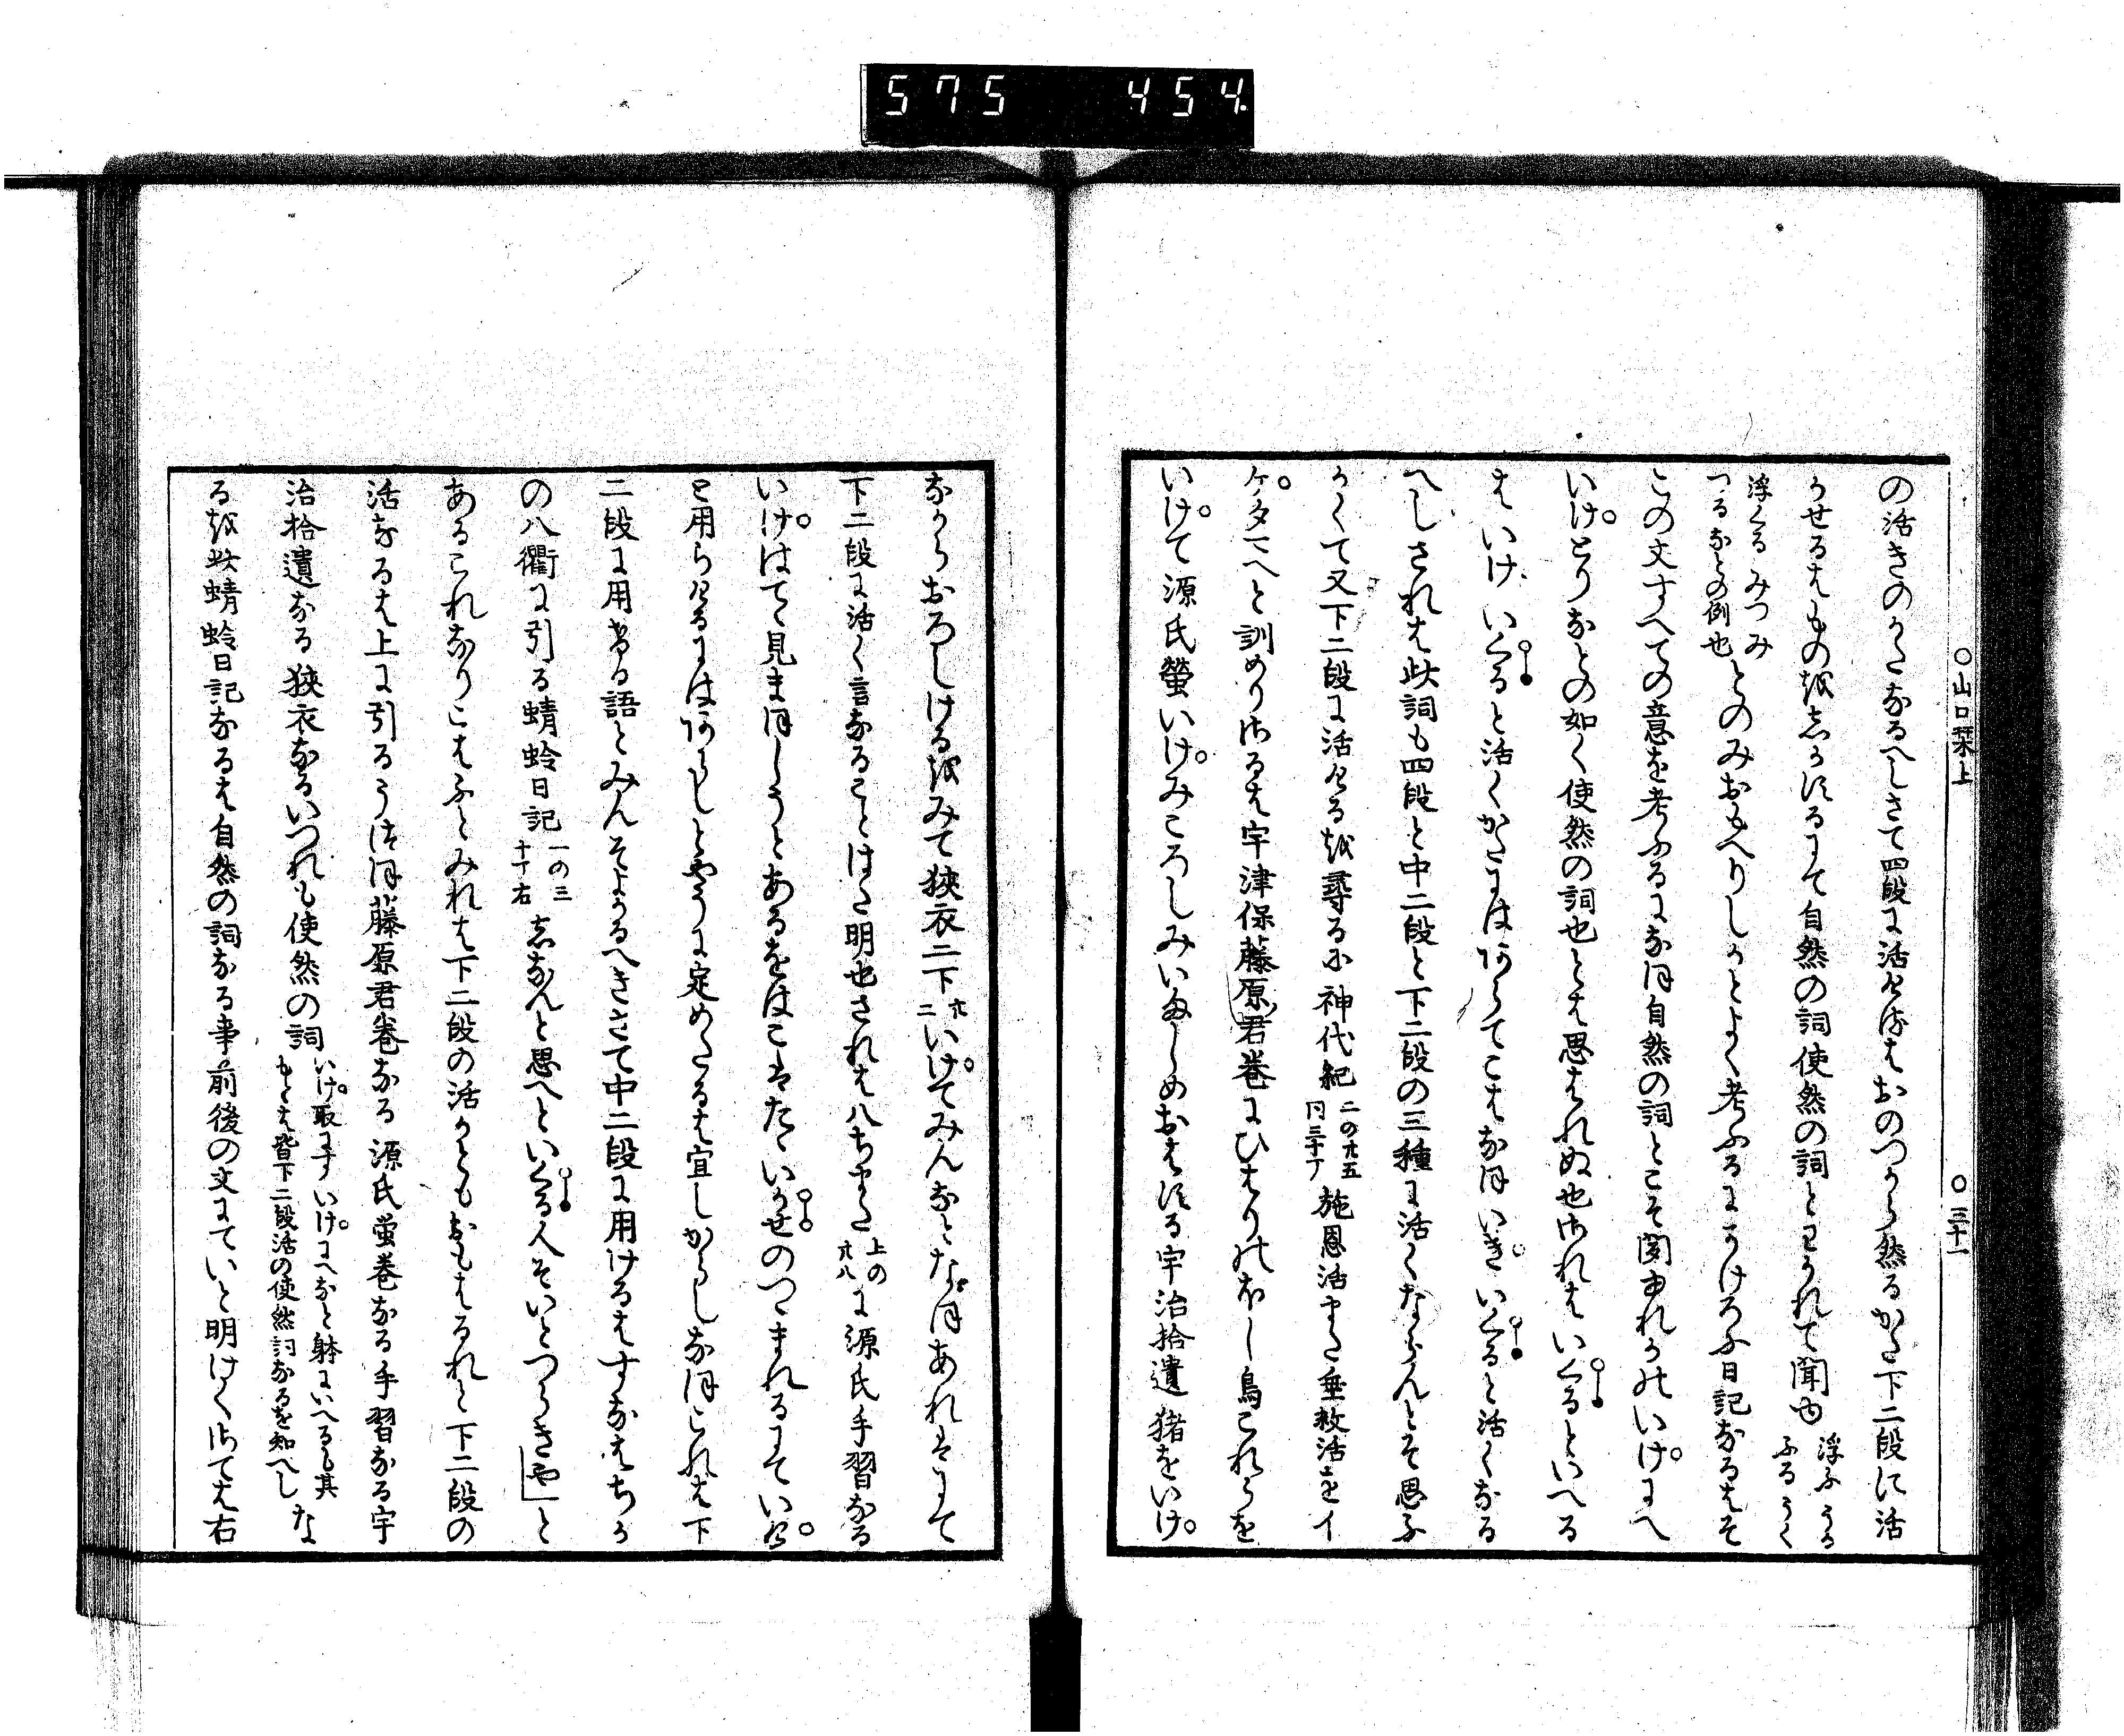 575 454.
○山口栞上 ○三十一
の活きのかたなるへしさて四段に活けるはおのつから然るかた下二段に活
かせるはものを志かするにて自然の詞使然の詞とわかれて聞ゆ 浮ふ うか
ふる うく
浮くる みつ み
つる なとの例也 とのみおもへりしかとよく考ふるにかけろふ日記なるはそ
この文すへての意を考ふるになほ自然の詞とこそ聞ゆれかのいけにへ
いけとりなとの如く使然の詞也とは思はれぬ也されはいくるといへる
はいけ いくると活くかたにはあらてこはなほいき いくると活くなる
へしされは此詞も四段と中二段と下二段の三種に活くならんとそ思ふ
かくて又下二段に活ける を尋るに神代紀 二の廿五
同三十丁 施恩活また垂救活をイ
ケタマヘと訓めりさるは宇津保藤原君巻にひはりのほし鳥これらを
いけて源氏螢いけみころしみいましめおはする宇治拾遺猪をいけ
なからおろしけるをみて狭衣二下 廿
二 いけてみんなとなほあれはにて
下二段に活く言なることはた明也されは八ちまた 上の
廿八 に源氏手習なる
いけはてゝ見まほしうとあるをはこはたゝいかせのつゝまれるにていけ
と用らけるにはあらしとやうに定めたるは宜しからしなほこれは下
二段に用ける語とみんそよかるへきさて中二段に用けるはすなはちか
の八衢に引る蜻蛉日記 一の三
十丁右 志なんと思へといくる人そいとつらきや」と
あるこれなりこはふとみれは下二段の活かともおもはるれと下二段の
活なるは上に引るうつほ藤原君巻なる源氏螢巻なる手習なる宇
治拾遺なる狭衣なるいつれも使然の詞 いけ取にす いけにへなと躰にいへるも其
もとは皆下二段活の使然詞なるを知へし な
るを此蜻蛉日記なるは自然の詞なる事前後の文にていと明けくさては右